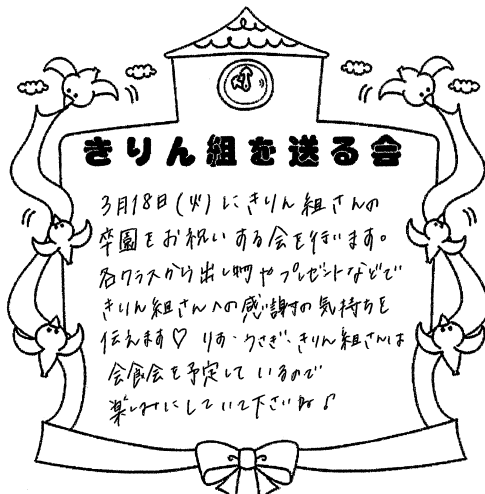 きりん組を送る会
3月18日(火)にきりん組さんの
卒園をお祝いする会を行います。
各クラスから出し物やプレゼントなどで
きりん組さんへの感謝の気持ちを
伝えます♡ りす・うさぎ・きりん組さんは
会食会を予定しているので
楽しみにしていて下さいね♪